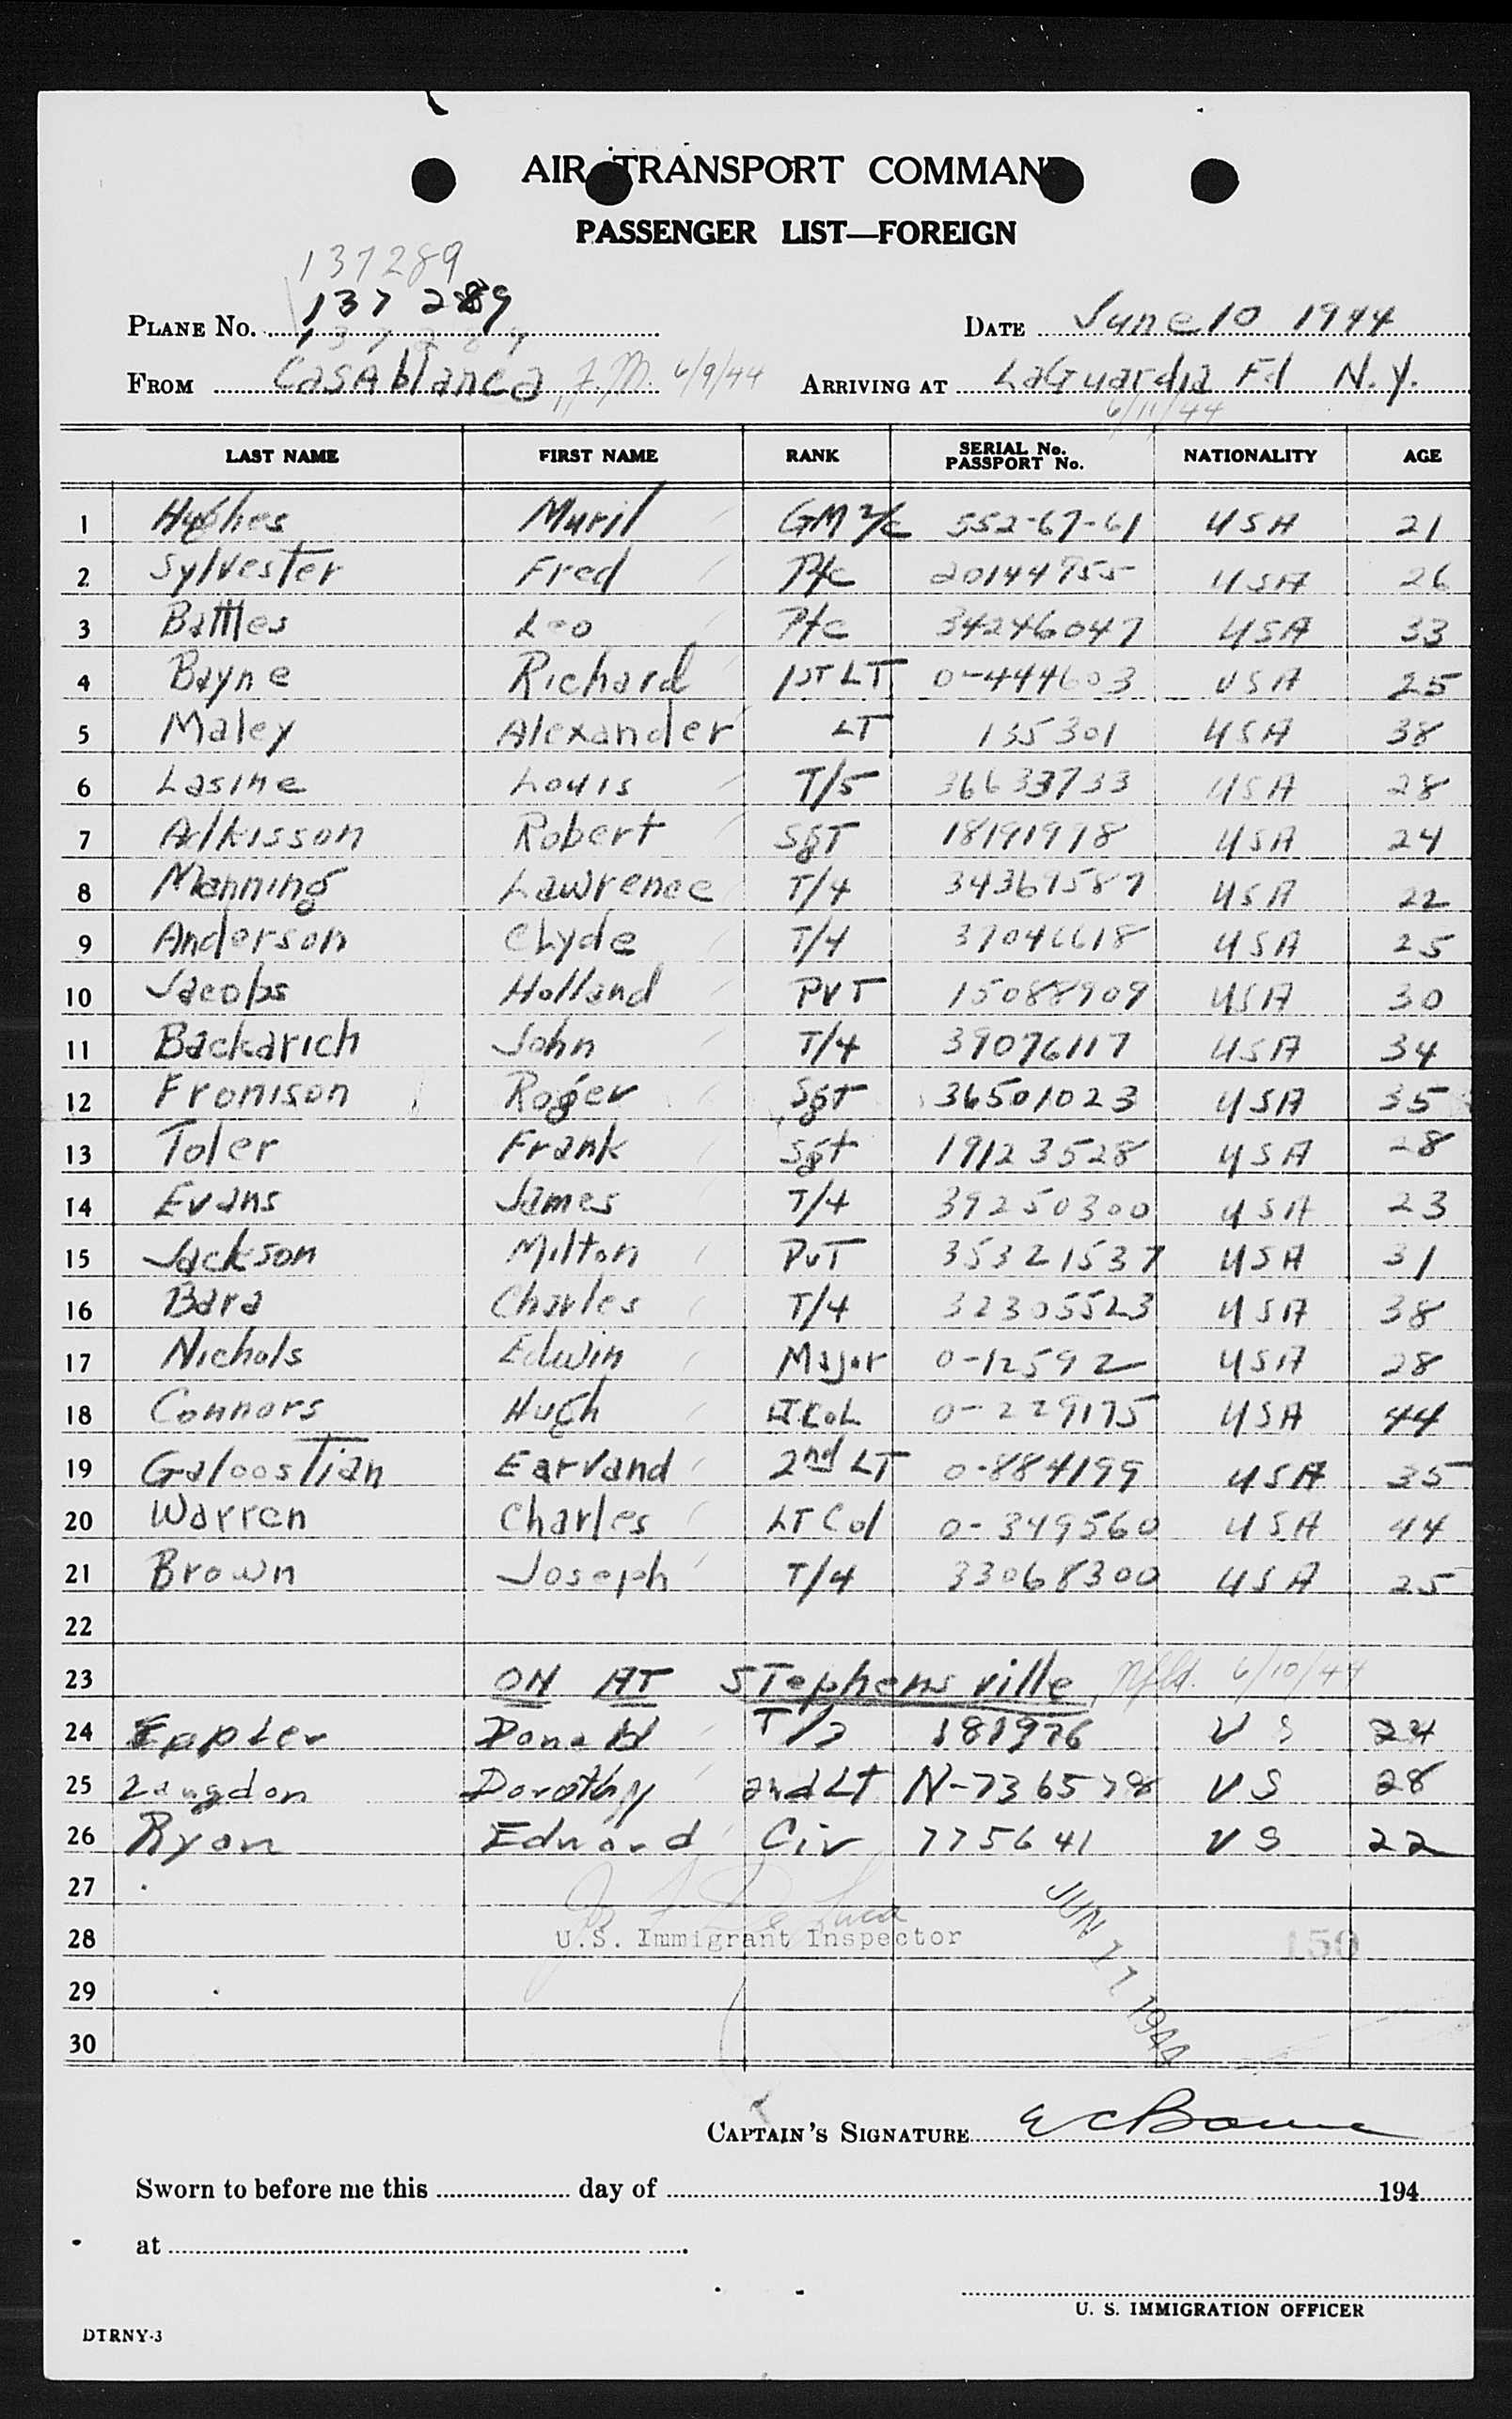 AIR TRANSPORT COMMAND
PASSENGER LIST—FOREIGN
137289
PLANE No. 137 289 DATE June 10 1944
137289
FROM CasAblanca, F.M. 6/9/44 ARRIVING AT LaGuardia Fd N.Y.
6/11/44
LAST NAME FIRST NAME RANK SERIAL No. PASSPORT No. NATIONALITY AGE
1 Hughes Muril GM 2/c 552-67-61 USA 21
2 Sylvester Fred Pfc 20144955 USA 26
3 Battles Leo Pfc 34246047 USA 33
4 Bayne Richard 1ST LT 0-444603 USA 25
5 Maley Alexander LT 135301 USA 38
6 Lasine Louis T/5 36633733 USA 28
7 Adkisson Robert SgT 18191998 USA 24
8 Manning Lawrence T/4 34369587 USA 22
9 Anderson Clyde T/4 37046618 USA 25
10 Jacobs Holland PVT 15088909 USA 30
11 Backarich John T/4 39076117 USA 34
12 Fromison Roger SgT 36501023 USA 35
13 Toler Frank Sgt 19123528 USA 28
14 Evans James T/4 39250300 USA 23
15 Jackson Milton PvT 35321537 USA 31
16 Bara Charles T/4 32305523 USA 38
17 Nichols Edwin Major 0-12592 USA 28
18 Connors Hugh LT.CoL 0-229175 USA 44
19 Galoostian Earvand 2nd LT 0-884199 USA 35
20 Warren Charles LT Col 0-349560 USA 44
21 Brown Joseph T/4 33068300 USA 25
22
23 ON AT STephens ville, Nfld. 6/10/44
24 Eppler Donald T/3 181976 US 24
25 Langdon Dorothy 2nd LT N-736578 US 28
26 Ryan Edward Civ 775641 US 22
27
28 U.S. Immigrant Inspector JUN 11 1944 150
29
30
CAPTAIN'S SIGNATURE
Sworn to before me this day of 194
at
U. S. IMMIGRATION OFFICER
DTRNY-3